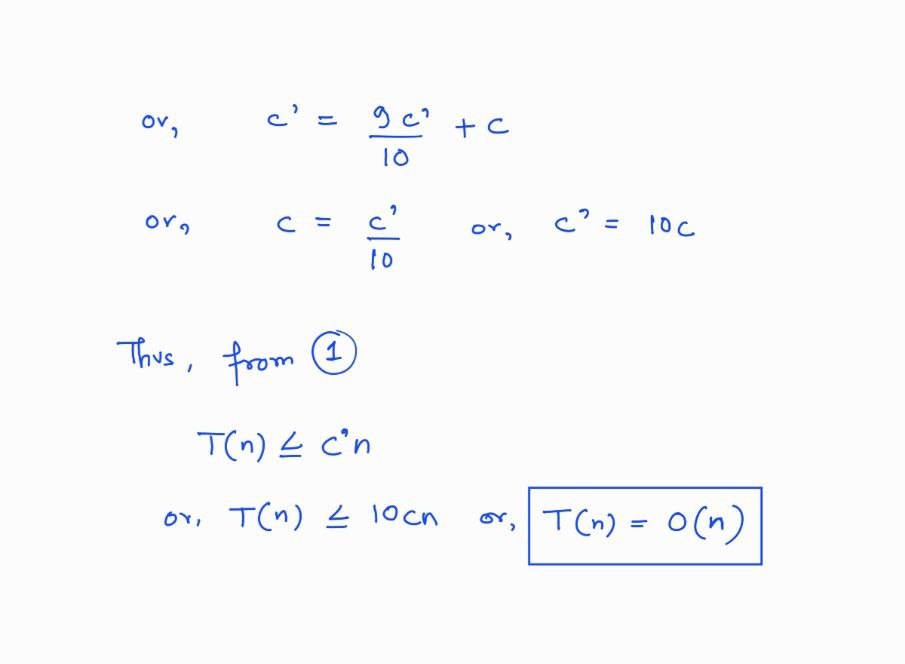 or, c' = 9c'/10 + c
or, c = c'/10 or, c' = 10c
Thus, from ①
T(n) ≤ c'n
or, T(n) ≤ 10cn or, T(n) = O(n)